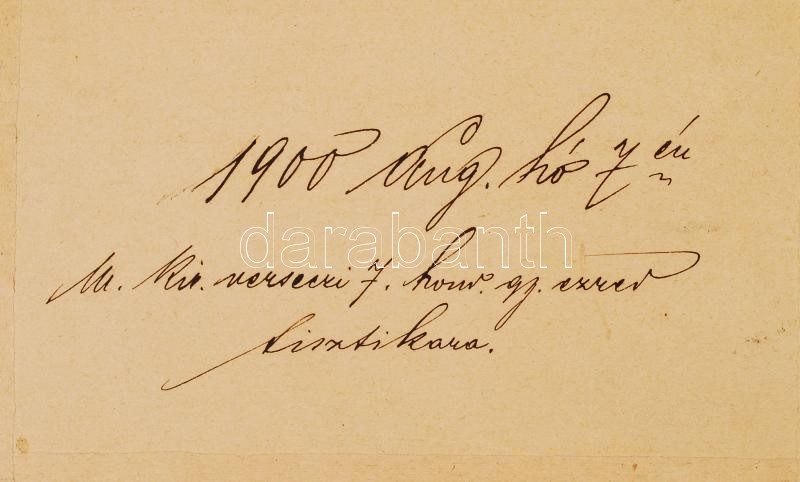 1900 Aug. hó 7 én
darabanth
M. kir. verseczi 7. honv. gy. ezred
tisztikara.